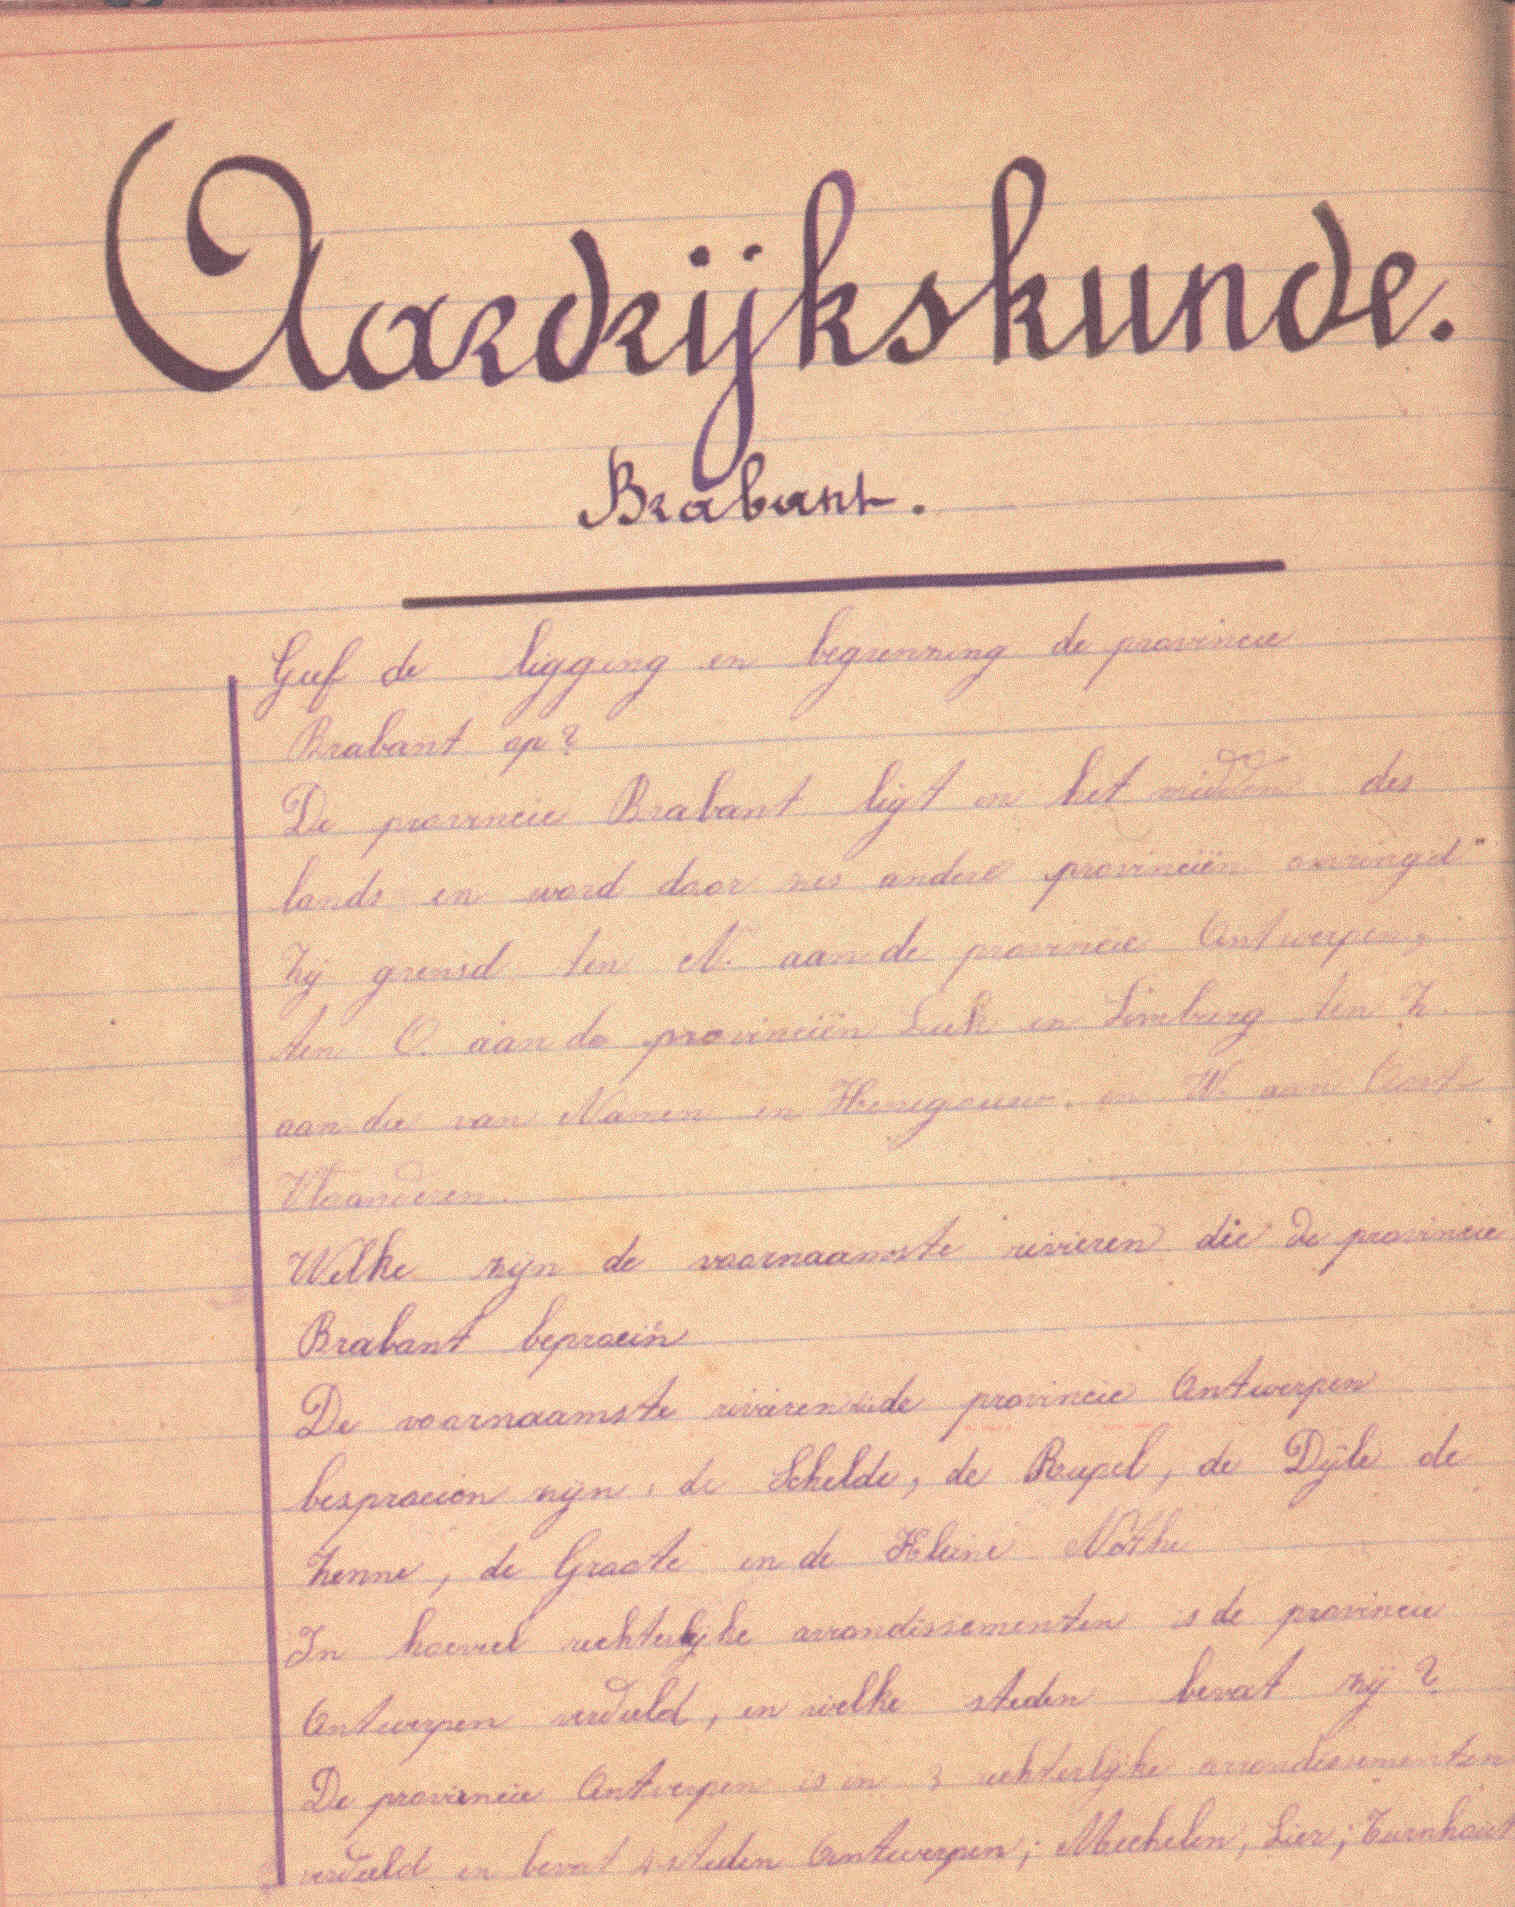 Aardrijkskunde.
Brabant.
Geef de ligging en begrenning de provincie
Brabant op?
De provincie Brabant ligt en het midden des
lands en word door zes andere provinciën omringd
Zij grensd ten N. aan de provincie Antwerpen,
ten O. aan de provinciën Luik en Limburg ten Z.
aan die van Namen en Henegouw. en W. aan Oost-
Vlaanderen.
Welke zijn de voornaamste rivieren die de provincie
Brabant beproein
De voornaamste rivieren die de provincie Antwerpen
besproeien zijn: de Schelde, de Rupel, de Dijle de
Zenne, de Groote en de Kleine Nethe
In hoeveel rechterlijke arrondissementen is de provincie
Antwerpen verdeeld, en welke steden bevat zij?
De provincie Antwerpen is in 3 rechterlijke arrondissementen
verdeeld en bevat 4 steden Antwerpen; Mechelen, Lier; Turnhout